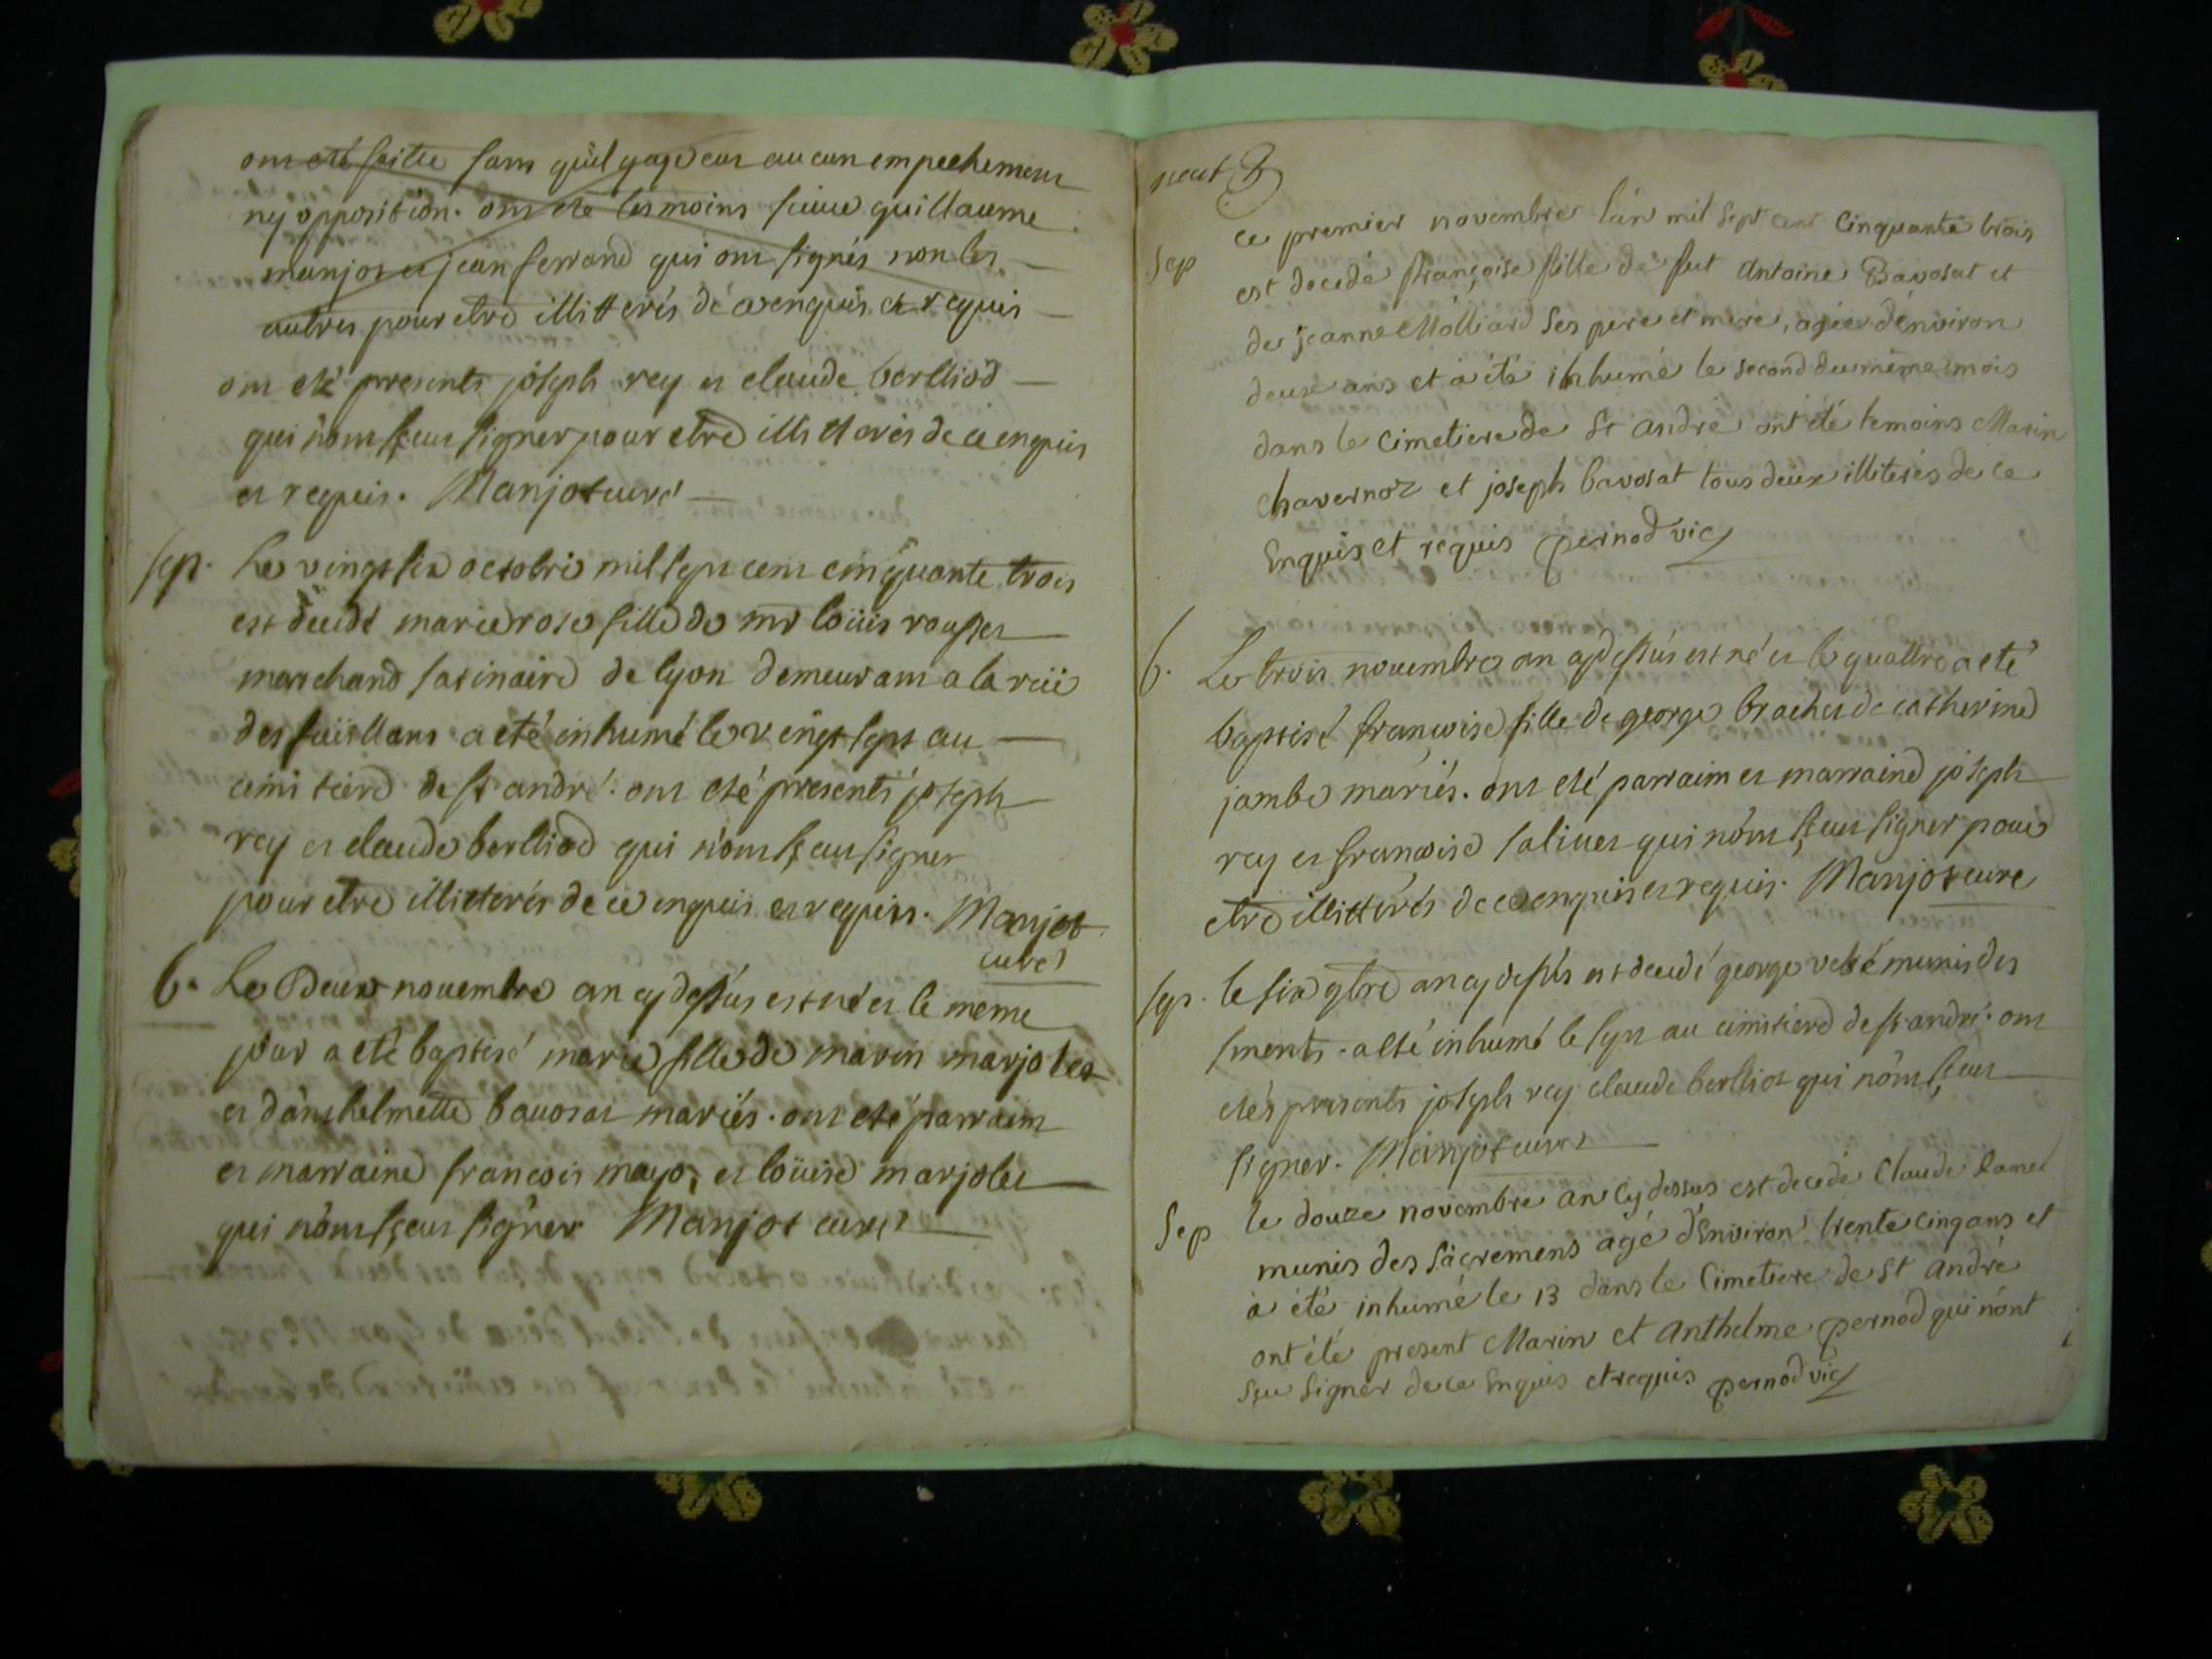 ont eté faitte sans qu'il y aye eut aucun empechement
ny opposition. ont eté tesmoins sieur guillaume
manjot et jean ferrand qui ont signés non les
autres pour etre illitterés de ce enquis et requis
ont eté presents joseph rey et claude berlliod
qui n'ont sçeut signer pour etre illitterés de ce enquis
et requis. Manjot curé
sep. Le vingt six octobre mil sept cent cinquante trois
est decedé marie rose fille de mr loüis rousset
marchand satinaire de lyon demeurant a la rüe
des a eté inhumé le vingt sept au
cimitiere de st andré. ont eté presents joseph
rey et claude berlliod qui n'ont sçeut signer
pour etre illitterés de ce enquis et requis. Manjot
curé
b. Le Deux novembre an cy dessus est né et le meme
jour a eté baptisé marie fille de marin marjolet
et d'anthelmette bavosat mariés. ont eté parrain
et marraine francois et loüise marjolet
qui n'ont sçeut signer Manjot curé
Ce premier novembre l'an mil sept cent Cinquante trois
Sep
est decedé françoise fille de fut Antoine Bavosat et
de jeanne Molliard ses pere et mere, agée d'environ
deux ans et a été inhumé le second du même mois
dans le Cimetiere de St André ont été temoins Marin
Chavernoz et joseph bavosat tous deux illiterés de ce
Enquis et requis pernod vic
b. Le trois novembre an cy dessus est né et le quattre a eté
baptisé francoise fille de george brachet de catherine
jambe mariés. ont eté parrain et marraine joseph
rey et francoise salivet qui n'ont sçeut signer pour
etre illitterés de ce enquis et requis. Manjot curé
sep. le six 9bre an cy dessus est decedé george munis des
sments. a eté inhumé le sept au cimitiere de st andré. ont
etés presents joseph rey claude berlliot qui n'ont sçeut
signer. Manjot curé
Sep le douze novembre an cy dessus est decedé Claude
munis des sacremens agé d'Environ trente cinq ans et
a été inhumé le 13 dans le Cimetiere de St André
ont été present Marin et Anthelme pernod qui n'ont
sçu signer de ce Enquis et requis pernod vic